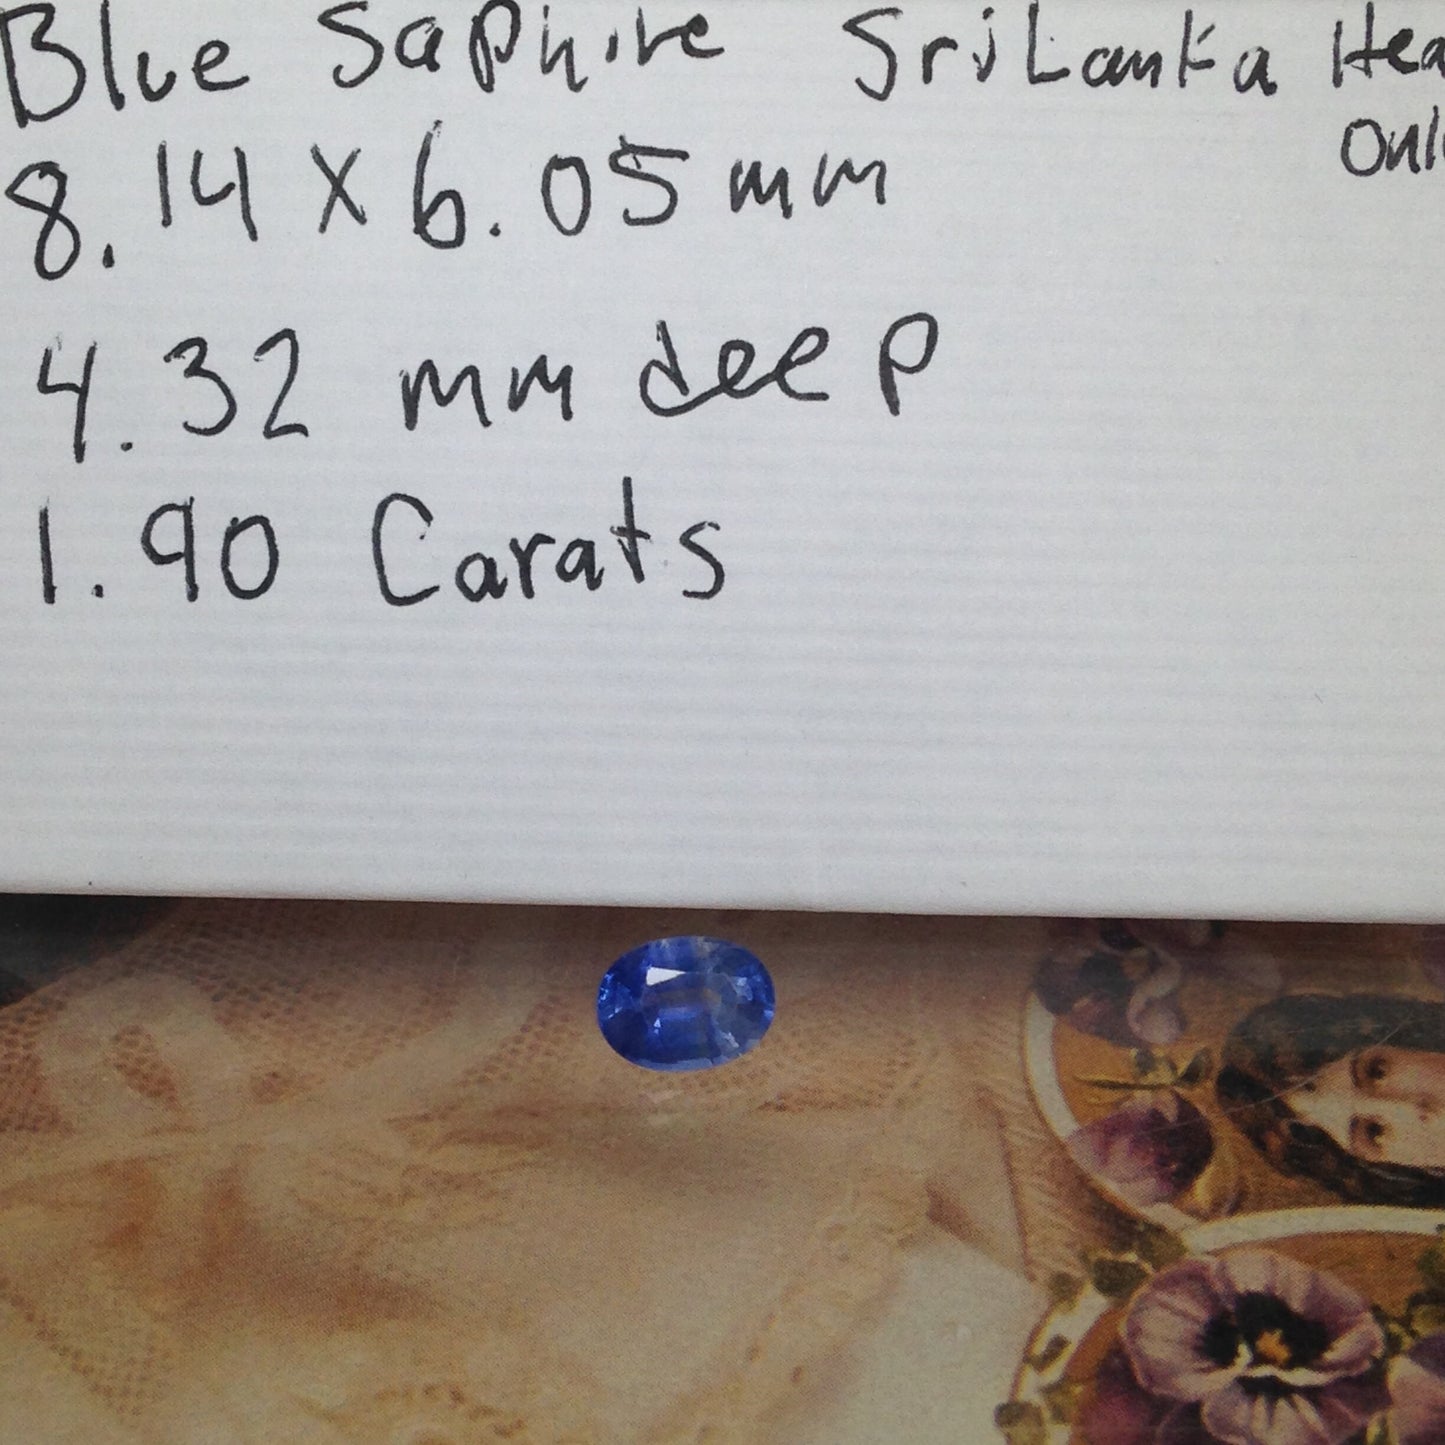 Blue Saphire SriLanka
8.14 x 6.05 mm
4.32 mm deep
1.90 Carats